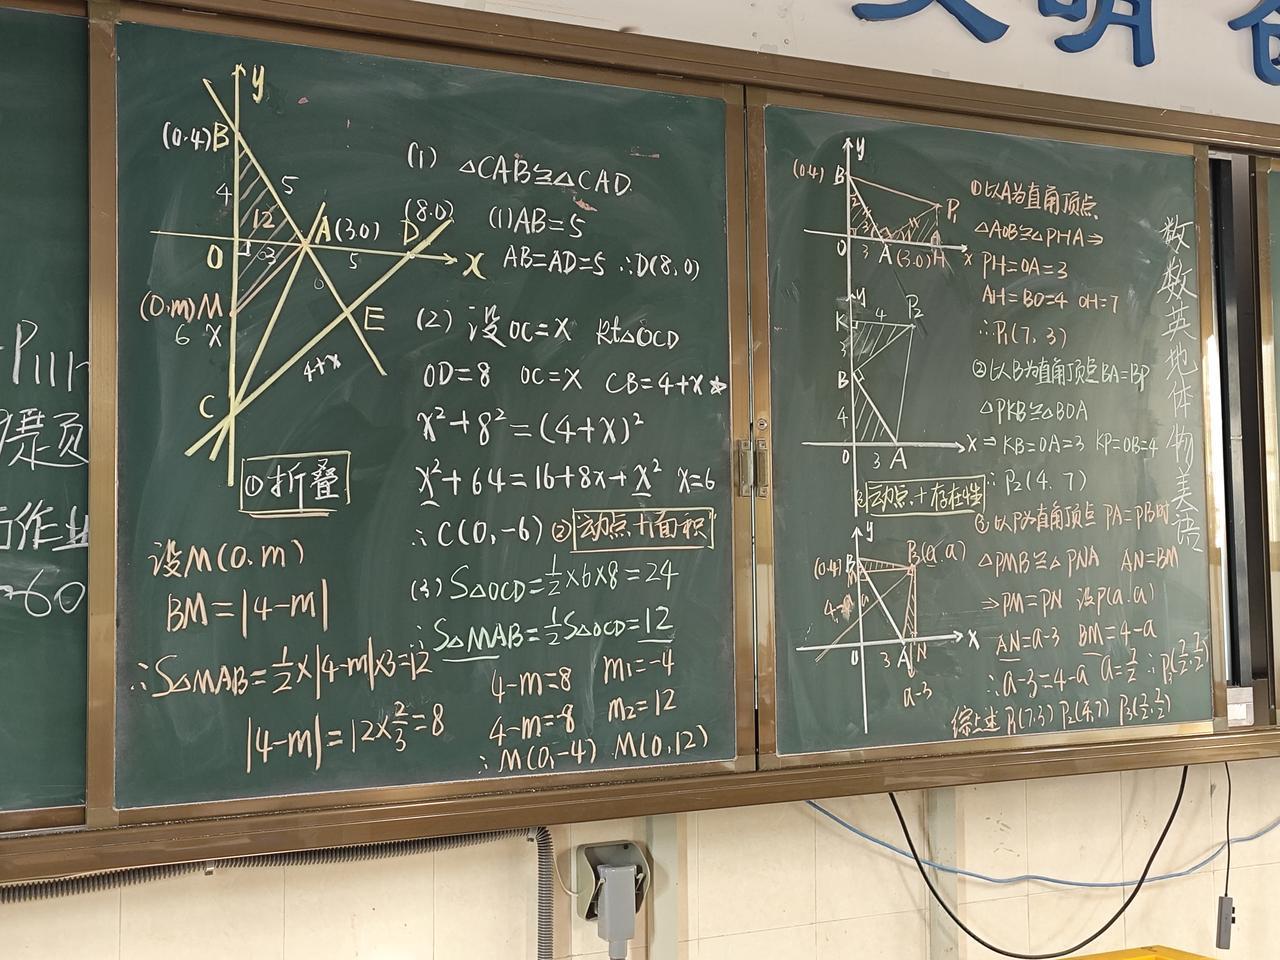 文明创
P111
提页
作业
60
y
(0.4) B
5
4
12
A(3.0)
(8.0)
D
O
3
5
x
(0,m) M
6 x
6
E
4+x
C
①折叠
(1) △CAB≌△CAD
(1)AB=5
AB=AD=5 ∴D(8,0)
(2) 设OC=x Rt△OCD
OD=8 OC=x CB=4+x
x²+8²=(4+x)²
x²+64=16+8x+x² x=6
∴C(0,-6) ② 动点+面积
(3) S△OCD=½×6×8=24
∴S△MAB=½S△OCD=12
4-m=8 m₁=-4
4-m=-8 m₂=12
∴M(0,-4) M(0,12)
设M(0,m)
BM=|4-m|
∴S△MAB=½×|4-m|×3=12
|4-m|=12×⅔=8
y
(0.4) B
P₁
O 3 A (3.0) H x
①以A为直角顶点
△AOB≌△PHA⇒
PH=OA=3
AH=BO=4 OH=7
∴P₁(7,3)
y
K 4 P₂
3
B
4
O 3 A x
②以B为直角顶点BA=BP
△PKB≌△BOA
⇒KB=OA=3 KP=OB=4
∴P₂(4,7)
动点+存在性
③以P为直角顶点 PA=PB时
△PMB≌△PNA AN=BM
⇒PM=PN 设P(a.a)
AN=a-3 BM=4-a
∴a-3=4-a a=7/2 ∴P₃(7/2,7/2)
综上述 P₁(7,3) P₂(4,7) P₃(7/2,7/2)
y
(0.4) B
P₃(a,a)
O 3 A N x
a-3
数
数
英
地
体
物
美
语